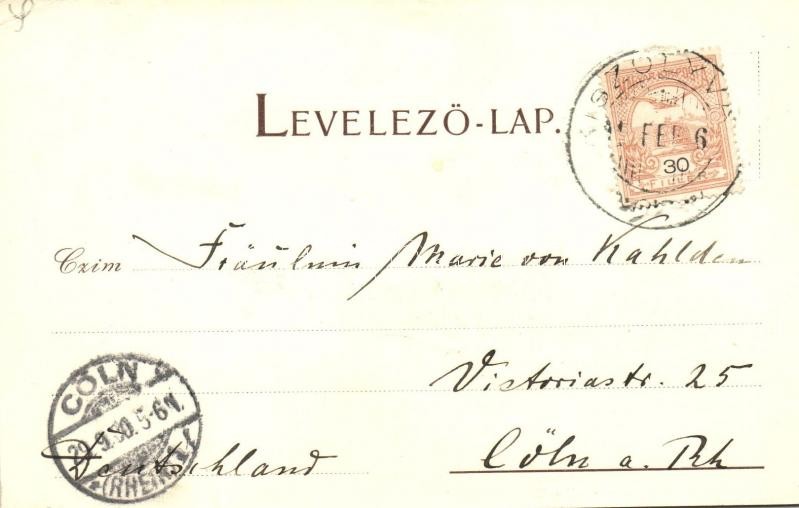 LEVELEZŐ-LAP.
30
FEB 6
Czim Fräulein Marie von Kahlden
Victoriastr. 25
Cöln a. Rh
Deutschland
CÖLN
5-6N.
(RHEIN)